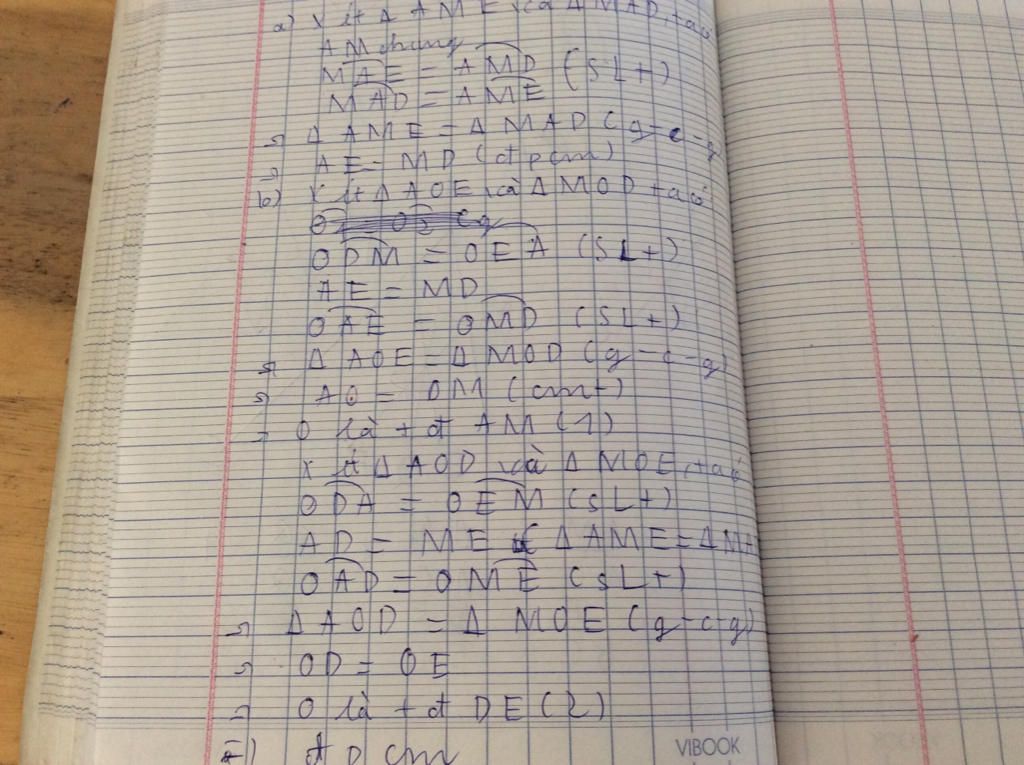 a) Xét Δ AME và Δ MAD, ta có
AM chung
MAE = AMD (SLT)
MAD = AME
=> Δ AME = Δ MAD (g-c-g)
=> AE = MD (đpcm)
b) Xét Δ AOE và Δ MOD ta có
ODM = OEA (SLT)
AE = MD
OAE = OMD (SLT)
=> Δ AOE = Δ MOD (g-c-g)
=> AO = OM (cmt)
=> O là tđ AM (1)
Xét Δ AOD và Δ MOE, ta có
ODA = OEM (SLT)
AD = ME ( Δ AME = Δ MA
OAD = OME (SLT)
=> Δ AOD = Δ MOE (g-c-g)
=> OD = OE
=> O là tđ DE (2)
VIBOOK